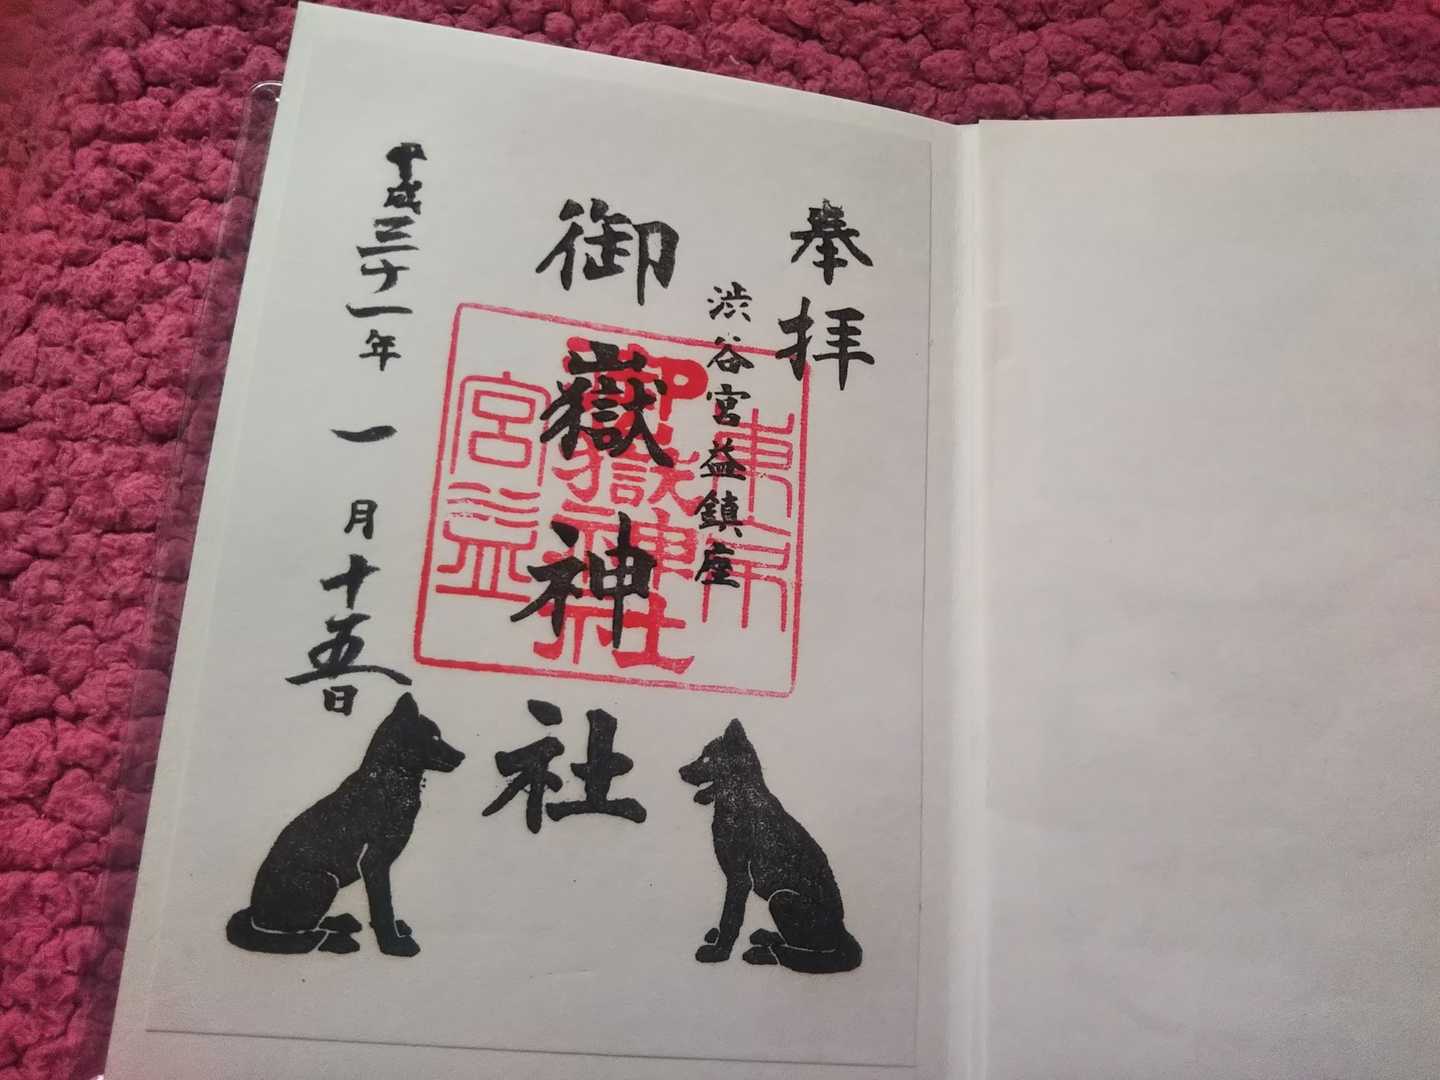 奉拝
渋谷宮益鎮座
御嶽神社
平成三十一年 一月十五日
東京
御嶽神社
宮益